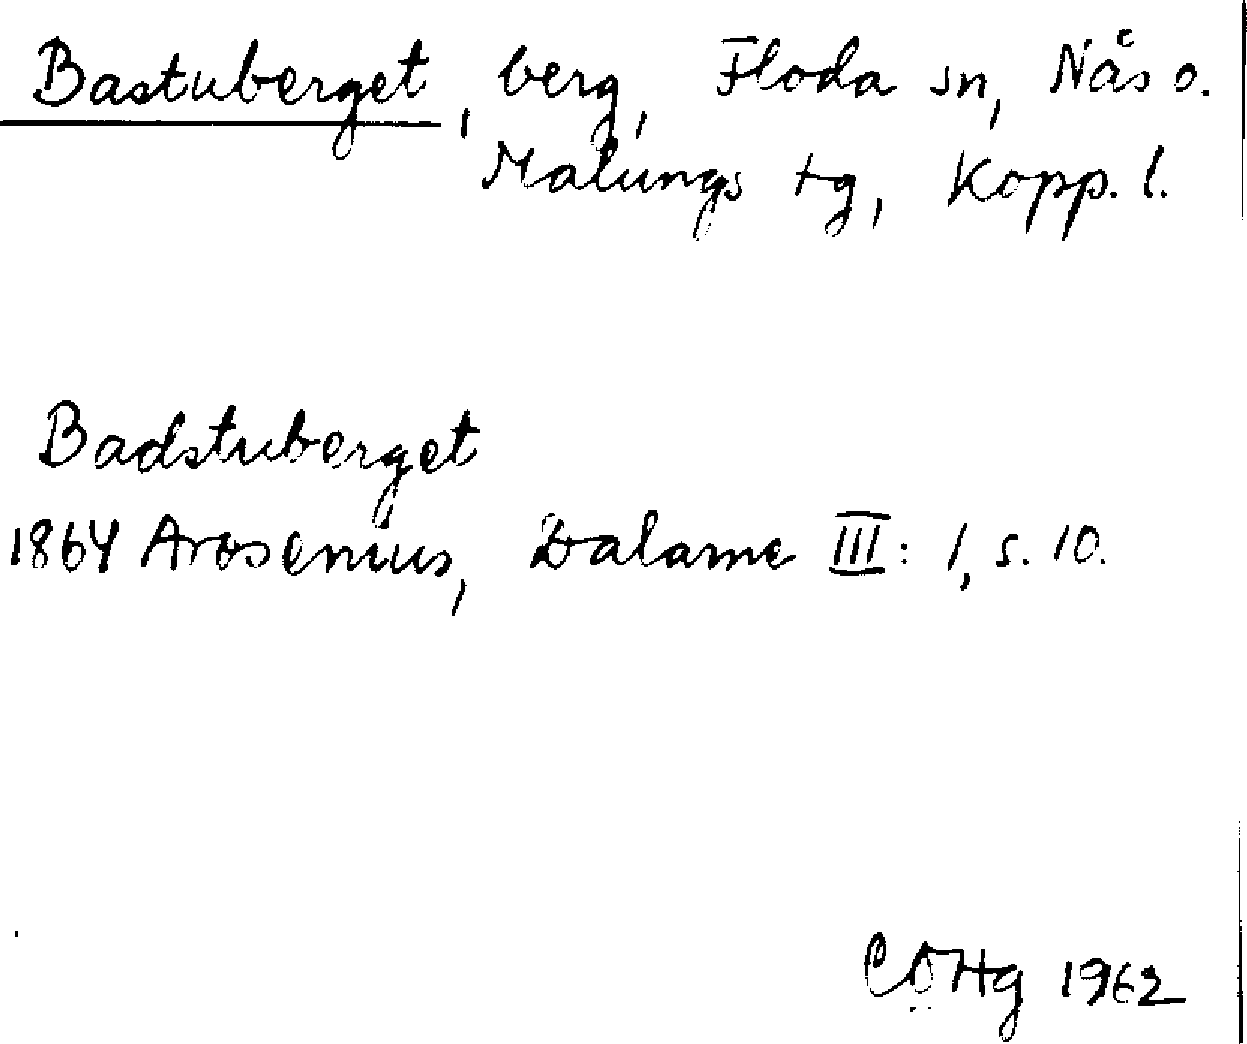 Bastuberget, berg, Floda sn, Nås o.
Malungs tg, Kopp. l.
Badstuberget
1864 Arosenius, Dalarne III: 1, s. 10.
1962